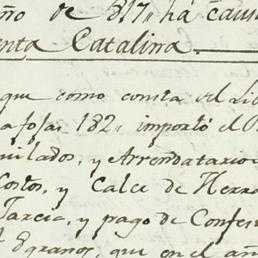 ño de 817 ha caus
enta Catalina.
que como consta del Li
a fojas 182, importó el
uilados, y Arrendatario
Costos, y Calce de Herra
Tarcia, y pago de Confes
Egranos, que en el añ